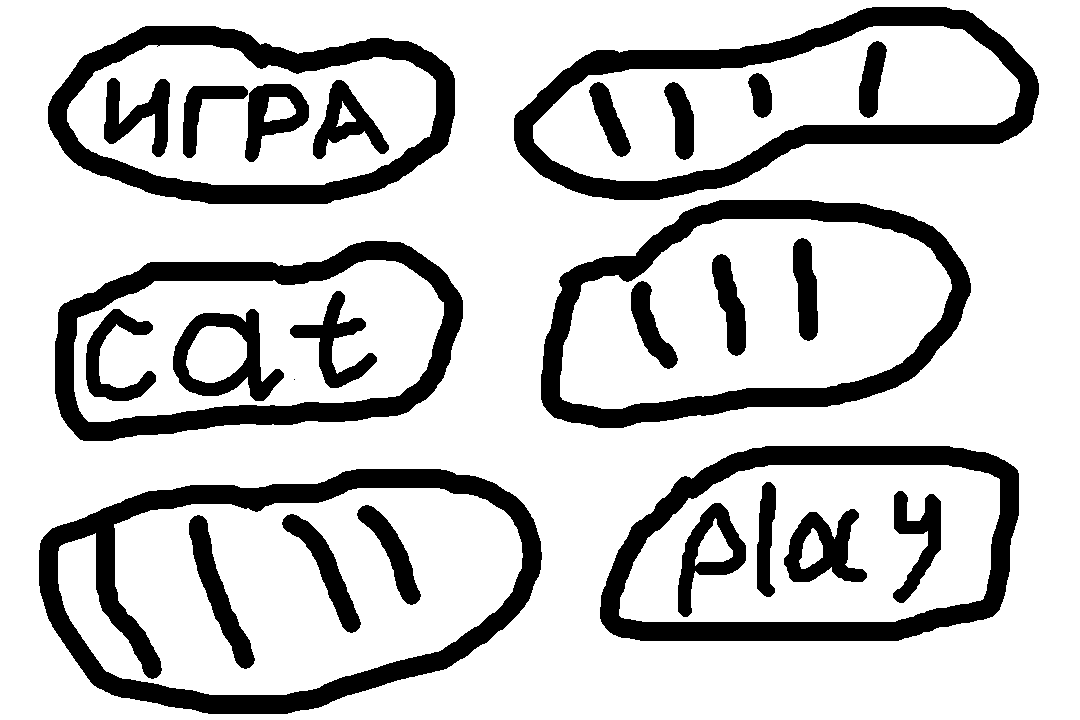 ИГРА
cat
play